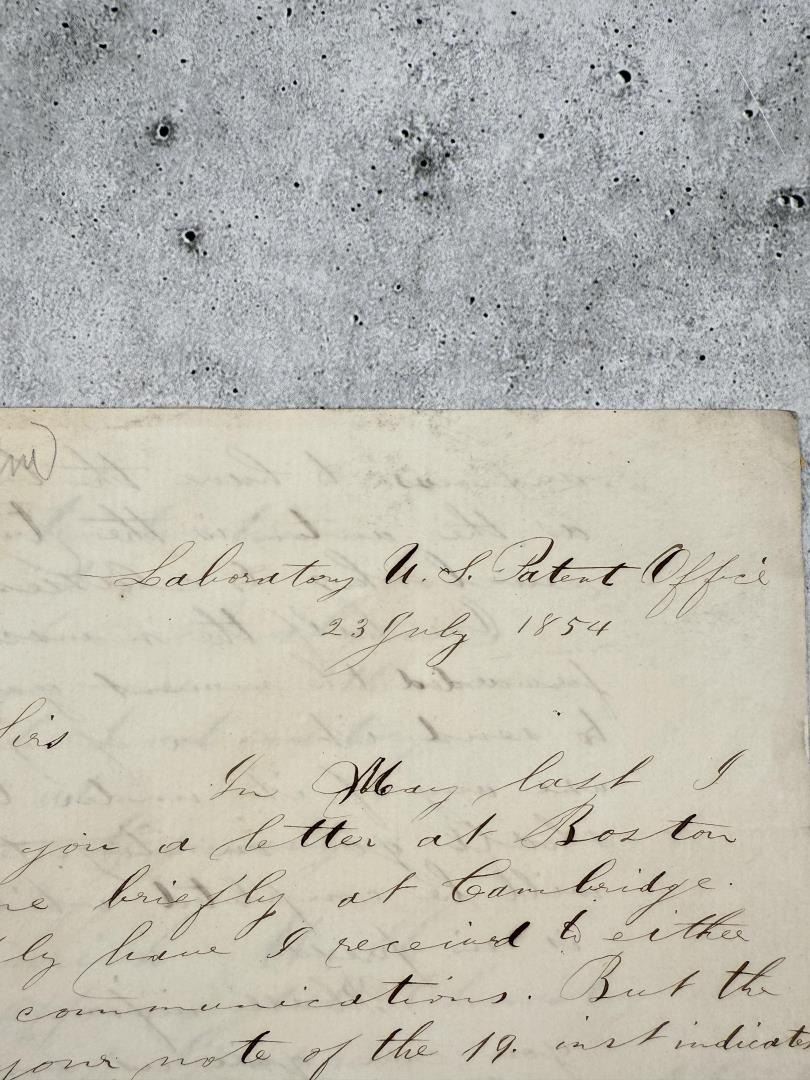 Laboratory U. S. Patent Office
23 July 1854
Sirs
In May last I
you a letter at Boston
briefly at Cambridge.
ly have I received to either
communications. But the
your note of the 19. inst indicates